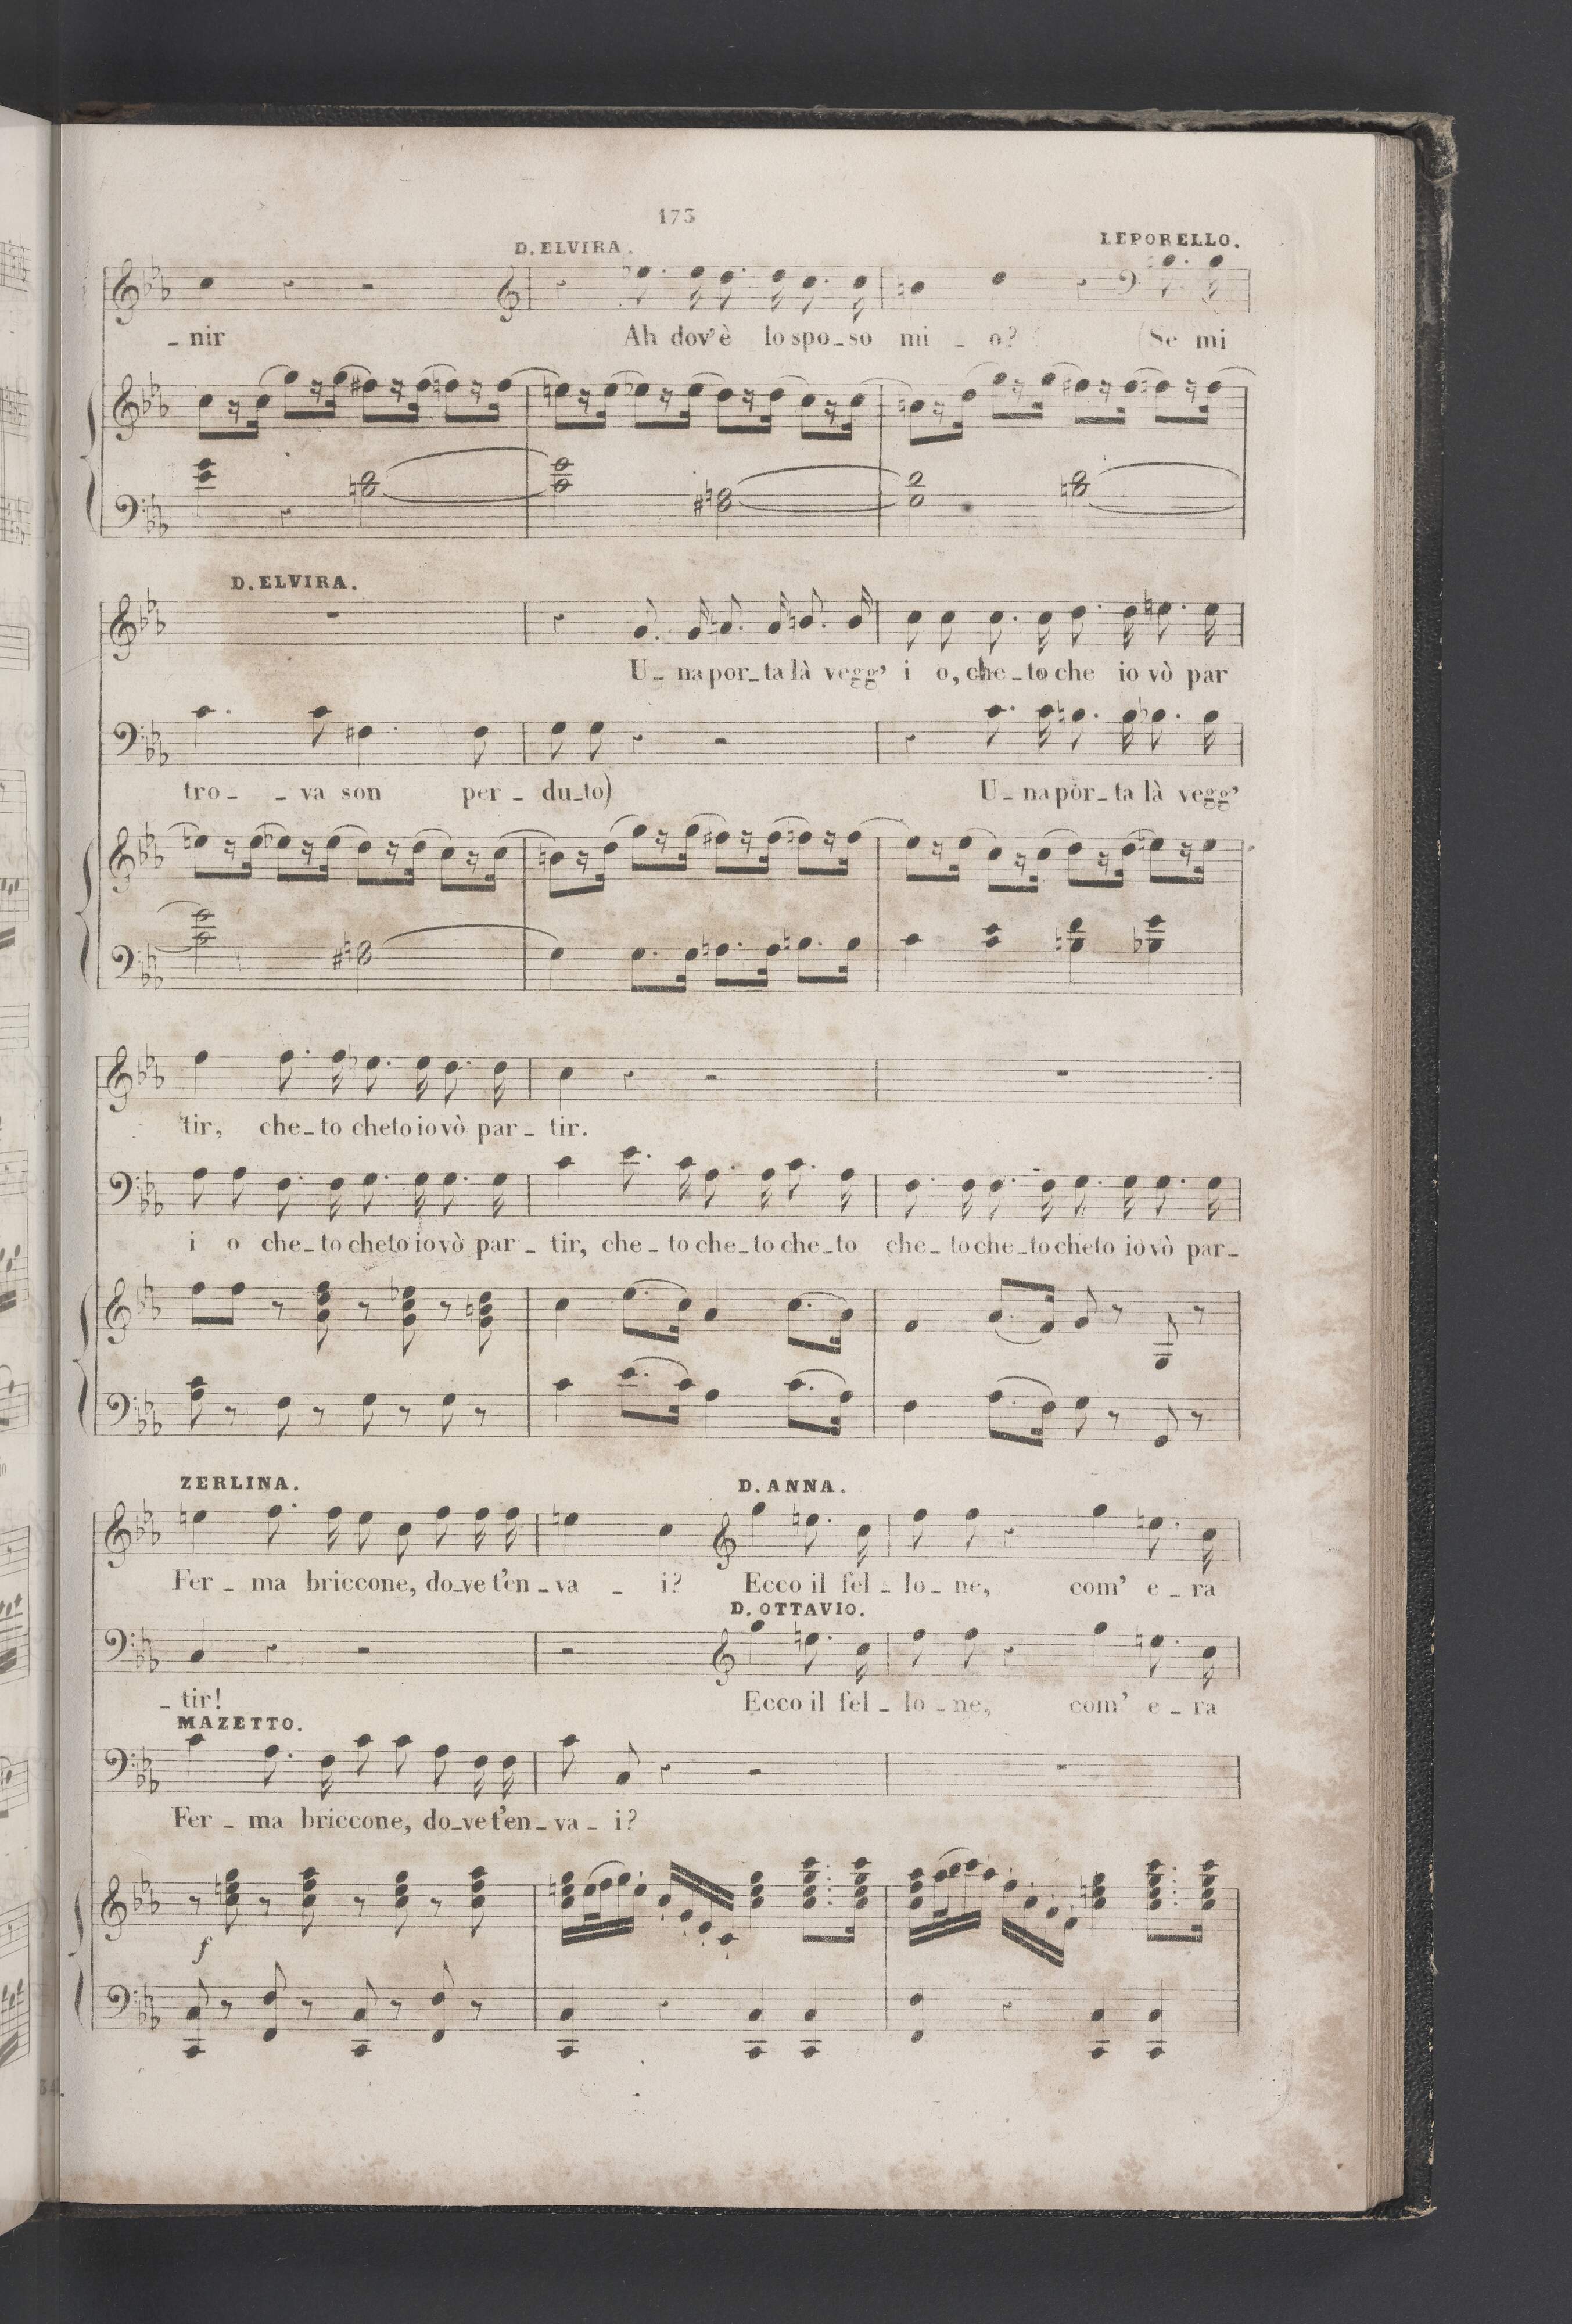 173
D. ELVIRA.
LEPORELLO.
_ nir Ah dov'è lo spo_so mi _ o? (Se mi
D. ELVIRA.
U_ na por_ta là vegg' i o, che_to che io vò par
tro_ _ va son per_ du_to) U_ na por_ta là vegg'
tir, che_to cheto io vò par_ tir.
i o che_to cheto io vò par_ tir, che_to che_to che_to che_to che_to cheto io vò par_
ZERLINA.
D. ANNA.
Fer_ ma briccone, do_ve t'en_va _ i? Ecco il fel_ lo_ ne, com' e_ ra
D. OTTAVIO.
_ tir! Ecco il fel_ lo_ ne, com' e_ ra
MAZETTO.
Fer_ ma briccone, do_ve t'en_va_ i?
f